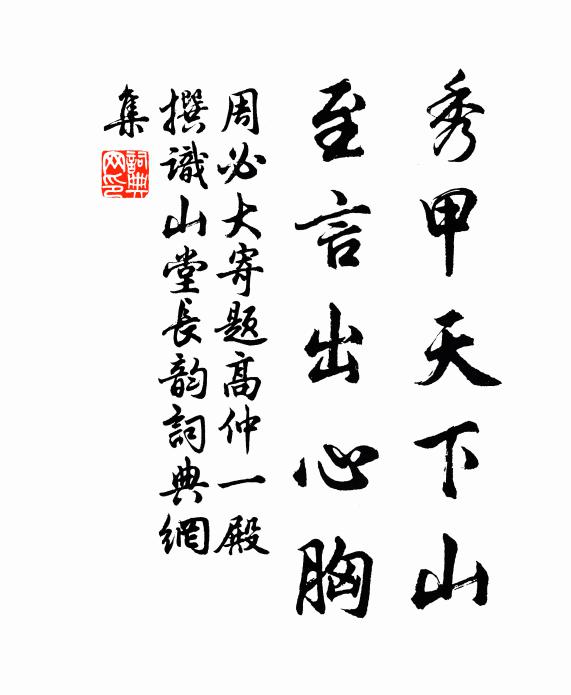 秀甲天下山
至言出心胸
周必大寄題高仲一殿
撰識山堂長韵詞典網
集
詞典网印